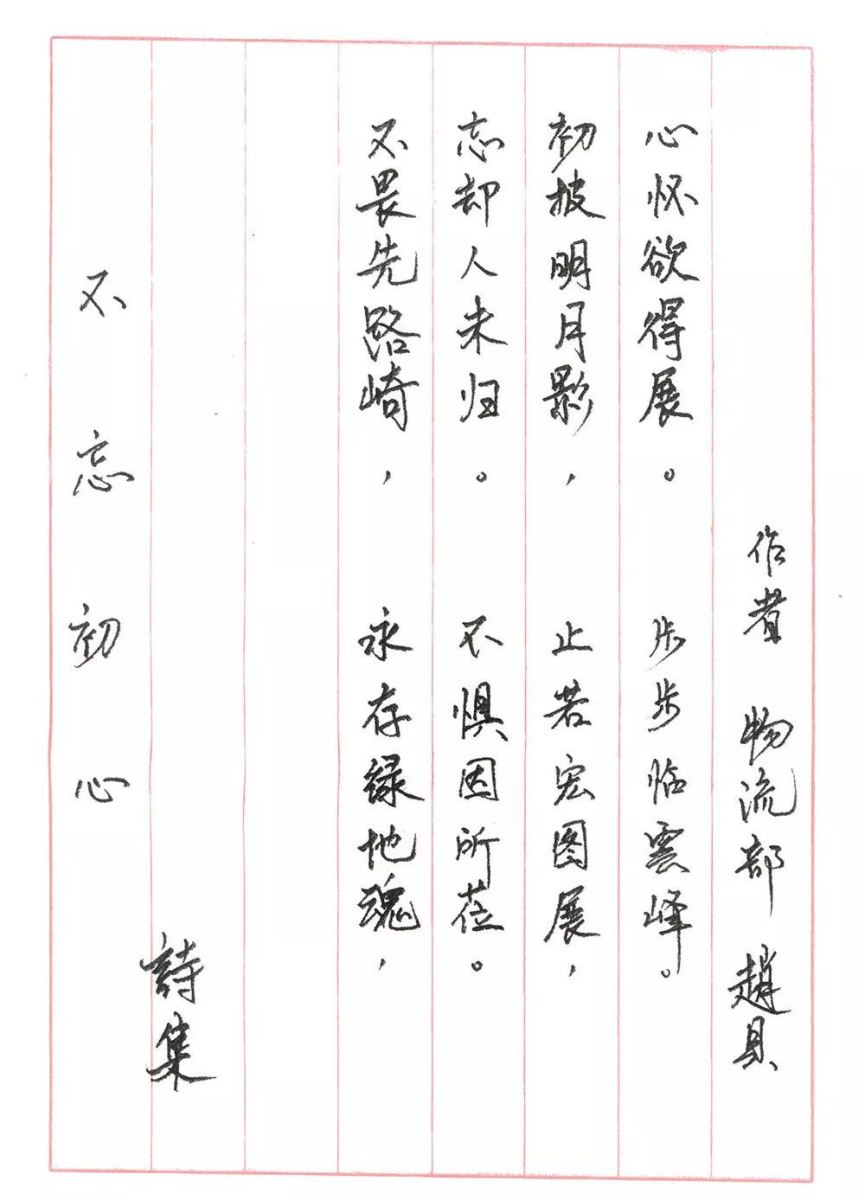 不忘初心
詩集
不畏先路崎，永存绿地魂，
忘却人未归。不惧因所莅。
初披明月影，止若宏图展，
心怀欲得展。步步临雲峰。
作者 物流部 趙具